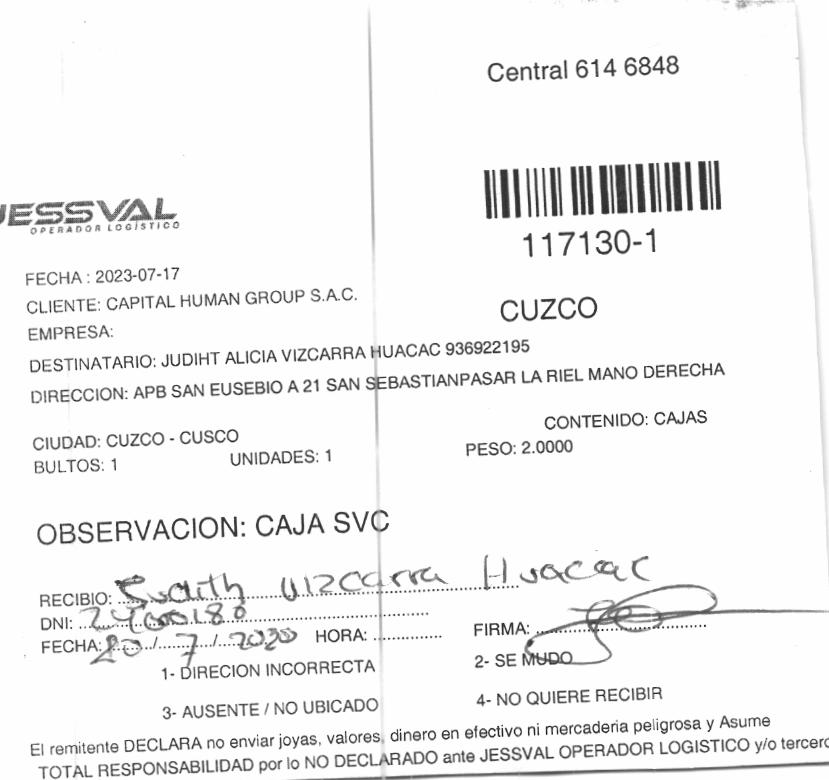 Central 614 6848
JESSVAL
OPERADOR LOGÍSTICO
117130-1
FECHA : 2023-07-17
CLIENTE: CAPITAL HUMAN GROUP S.A.C.
CUZCO
EMPRESA:
DESTINATARIO: JUDIHT ALICIA VIZCARRA HUACAC 936922195
DIRECCION: APB SAN EUSEBIO A 21 SAN SEBASTIANPASAR LA RIEL MANO DERECHA
CIUDAD: CUZCO - CUSCO CONTENIDO: CAJAS
BULTOS: 1 UNIDADES: 1 PESO: 2.0000
OBSERVACION: CAJA SVC
RECIBIO: Judith Vizcarra Huacac
DNI:
FECHA: 20/7/ HORA: FIRMA:
1- DIRECION INCORRECTA 2- SE MUDO
3- AUSENTE / NO UBICADO 4- NO QUIERE RECIBIR
El remitente DECLARA no enviar joyas, valores, dinero en efectivo ni mercaderia peligrosa y Asume
TOTAL RESPONSABILIDAD por lo NO DECLARADO ante JESSVAL OPERADOR LOGISTICO y/o tercero